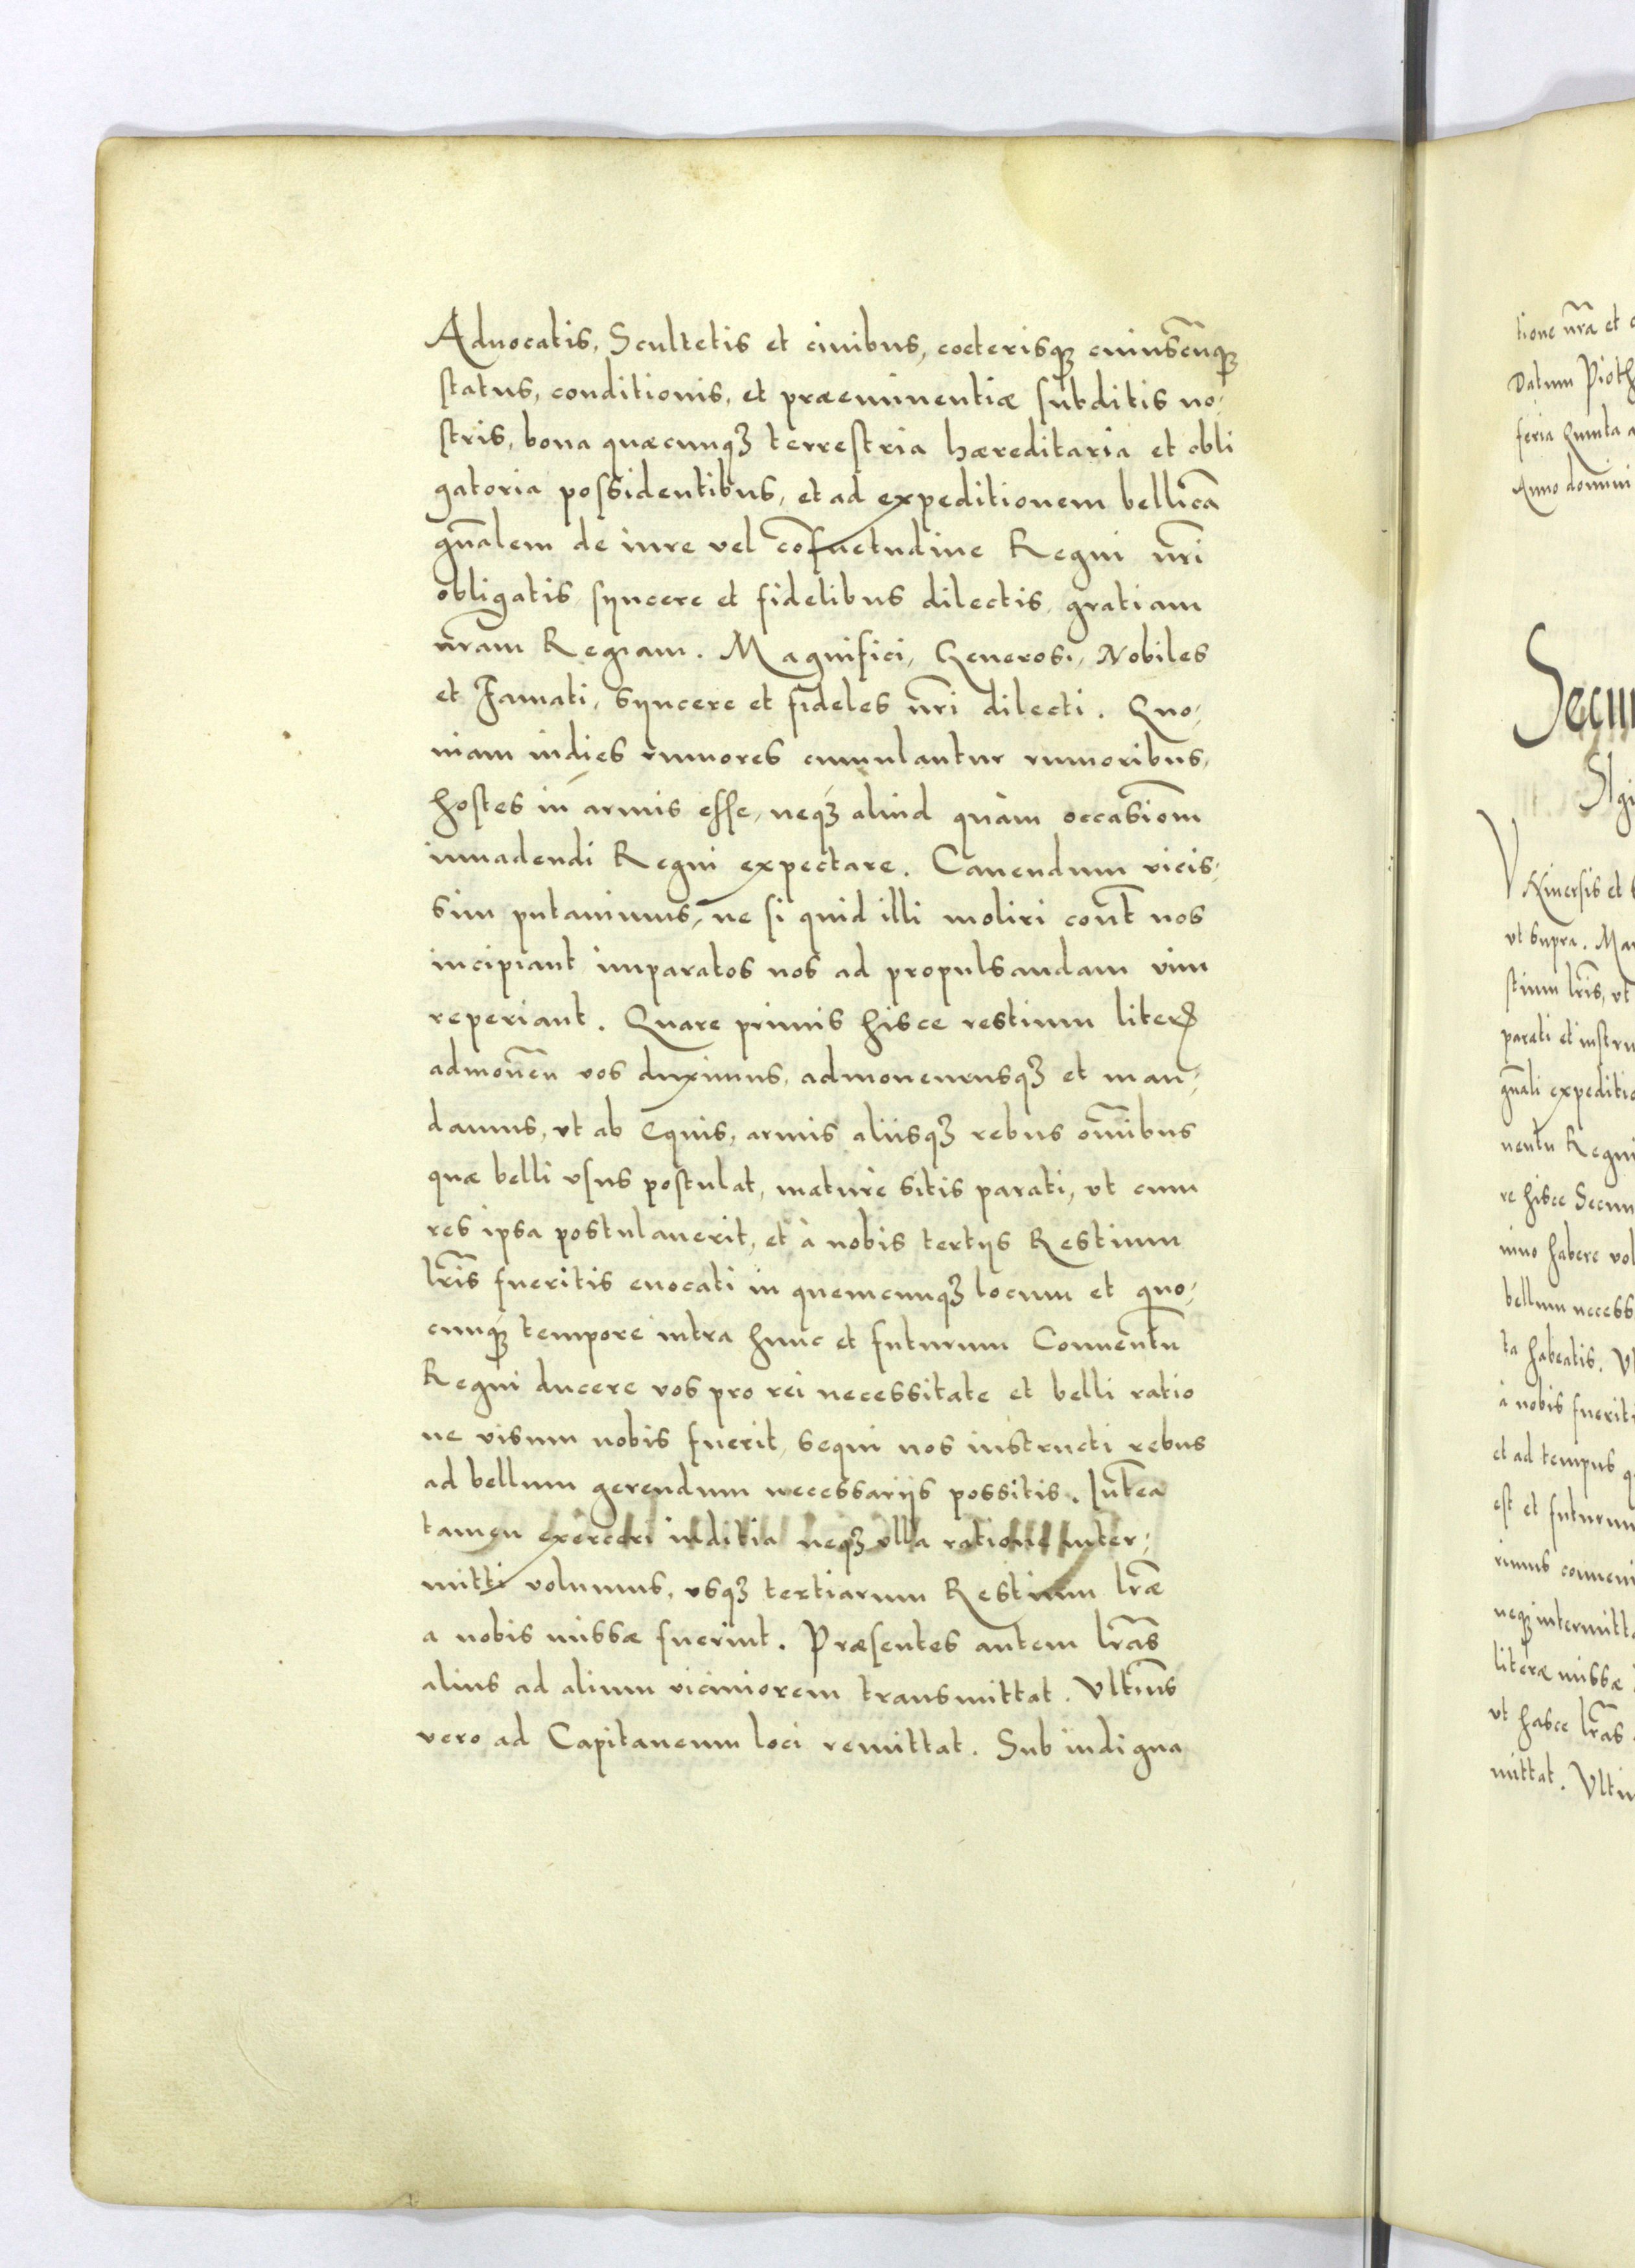 Aduocatis, Scultetis et ciuibus, coeterisqꝫ cuiuscūqꝫ
status, conditionis, et præeminentiæ subditis no⸗
stris, bona quæcunqꝫ terrestria hæreditaria et obli
gatoria possidentibus, et ad expeditionem bellicā
gn̄alem de iure vel cōsuetudine Regni nr̄i
obligatis syncere et fidelibus dilectis, gratiam
nr̄am Regiam. Magnifici, Generosi, Nobiles
et Famati, syncere et fideles nr̄i dilecti. Quo⸗
niam indies rumores cumulantur rumoribus,
hostes in armis esse, neqꝫ aliud quàm occasiom̄
inuadendi Regni expectare. Cauendum vicis⸗
sim putauimus, ne si quid illi moliri cont̄ nos
incipiant imparatos nos ad propulsandam vim
reperiant. Quare primis hisce restium literꝭ
admonēn vos duximus, admonemusqꝫ et man⸗
damus, vt ab Equis, armis aliisqꝫ rebus om̄ibus
quæ belli vsus postulat, maturè sitis parati, vt cum
res ipsa postulauerit, et à nobis tertijs Restium
lr̄is fueritis euocati in quemcunqꝫ locum et quo⸗
cunqꝫ tempore intra hunc et futurum Conuentū
Regni ducere vos pro rei necessitate et belli ratio
ne visum nobis fuerit, sequi nos instructi rebus
ad bellum gerendum necessarijs possitis. Int̄ea
tamen exerceri iuditia neqꝫ vlla ratione inter⸗
mitti volumus, vsqꝫ tertiarum Restium lr̄æ
a nobis missæ fuerint. Præsentes autem lr̄as
alius ad alium viciniorem transmittat. Vltim̄s
vero ad Capitaneum loci remittat. Sub indigna
tione nr̄a et
Datum
feria Quinta
Anno domini
Vniuersis et
vt supra.
stium lr̄is, vt
parati et
gn̄ali
uentu Regni
re hisce
habere
bellum
ta habeatis.
à nobis
et ad tempus
est et
rimus
neqꝫ
literæ missæ
vt hasce lr̄as
mittat.